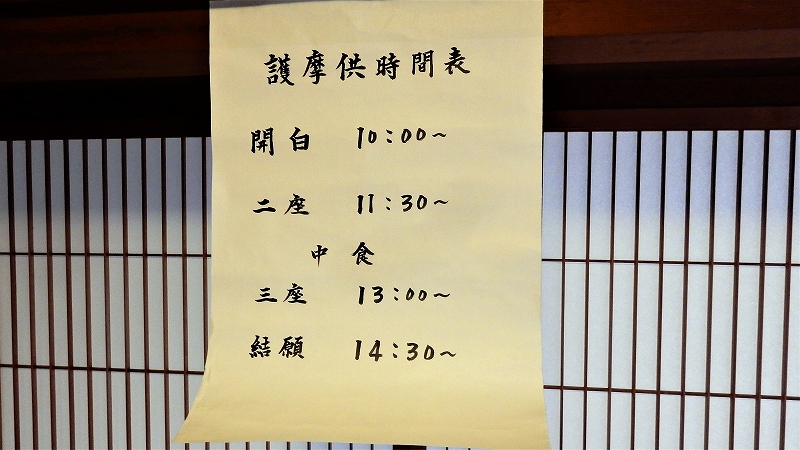 護摩供時間表
開白 10:00~
二座 11:30~
中食
三座 13:00~
結願 14:30~